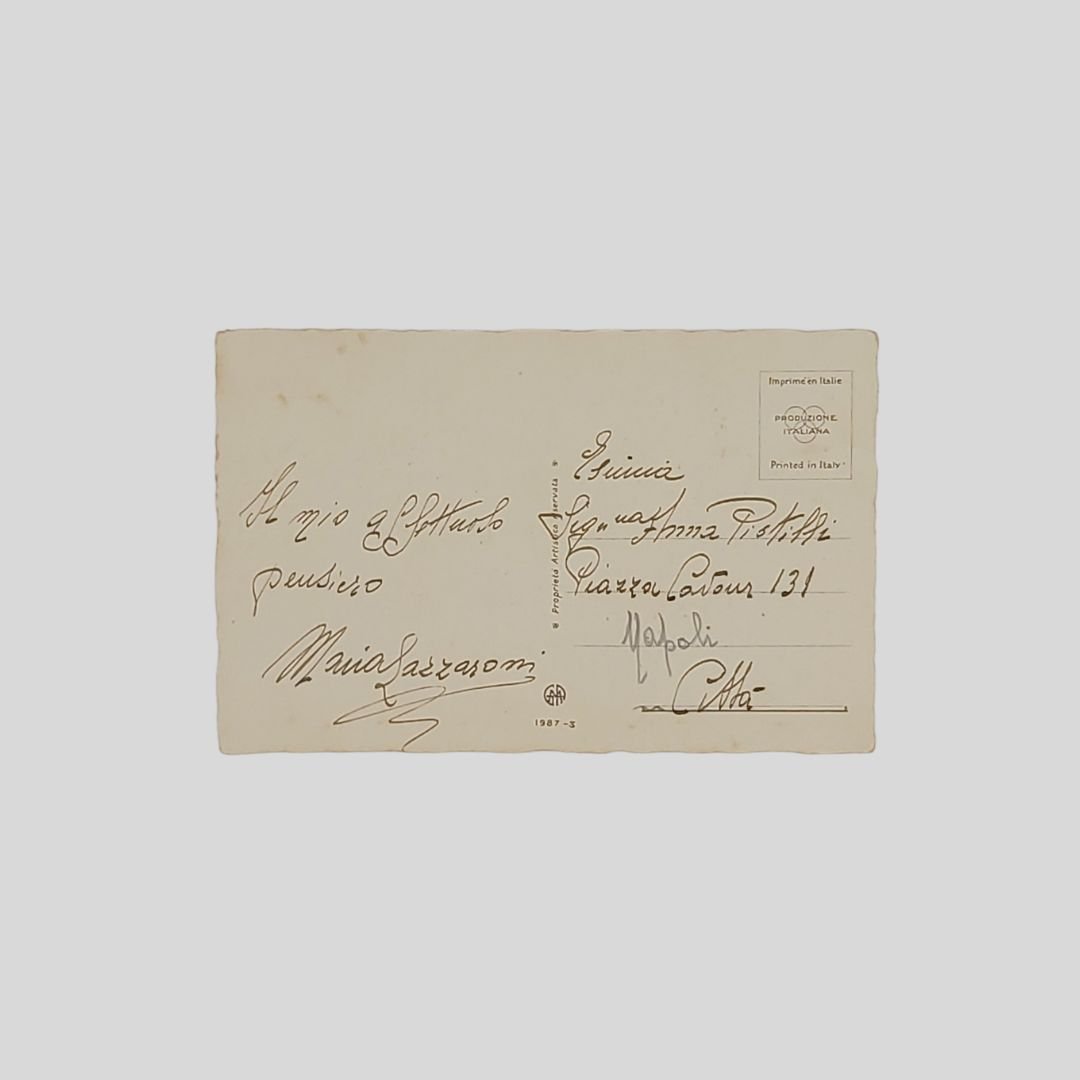 Il mio affettuoso
pensiero
Maria Lazzaroni
Proprietà Artistica Riservata
1987-3
Imprimé en Italie
PRODUZIONE
ITALIANA
Printed in Italy
Esimia
Sign.na Anna Pistilli
Piazza Cavour 131
Napoli
Città